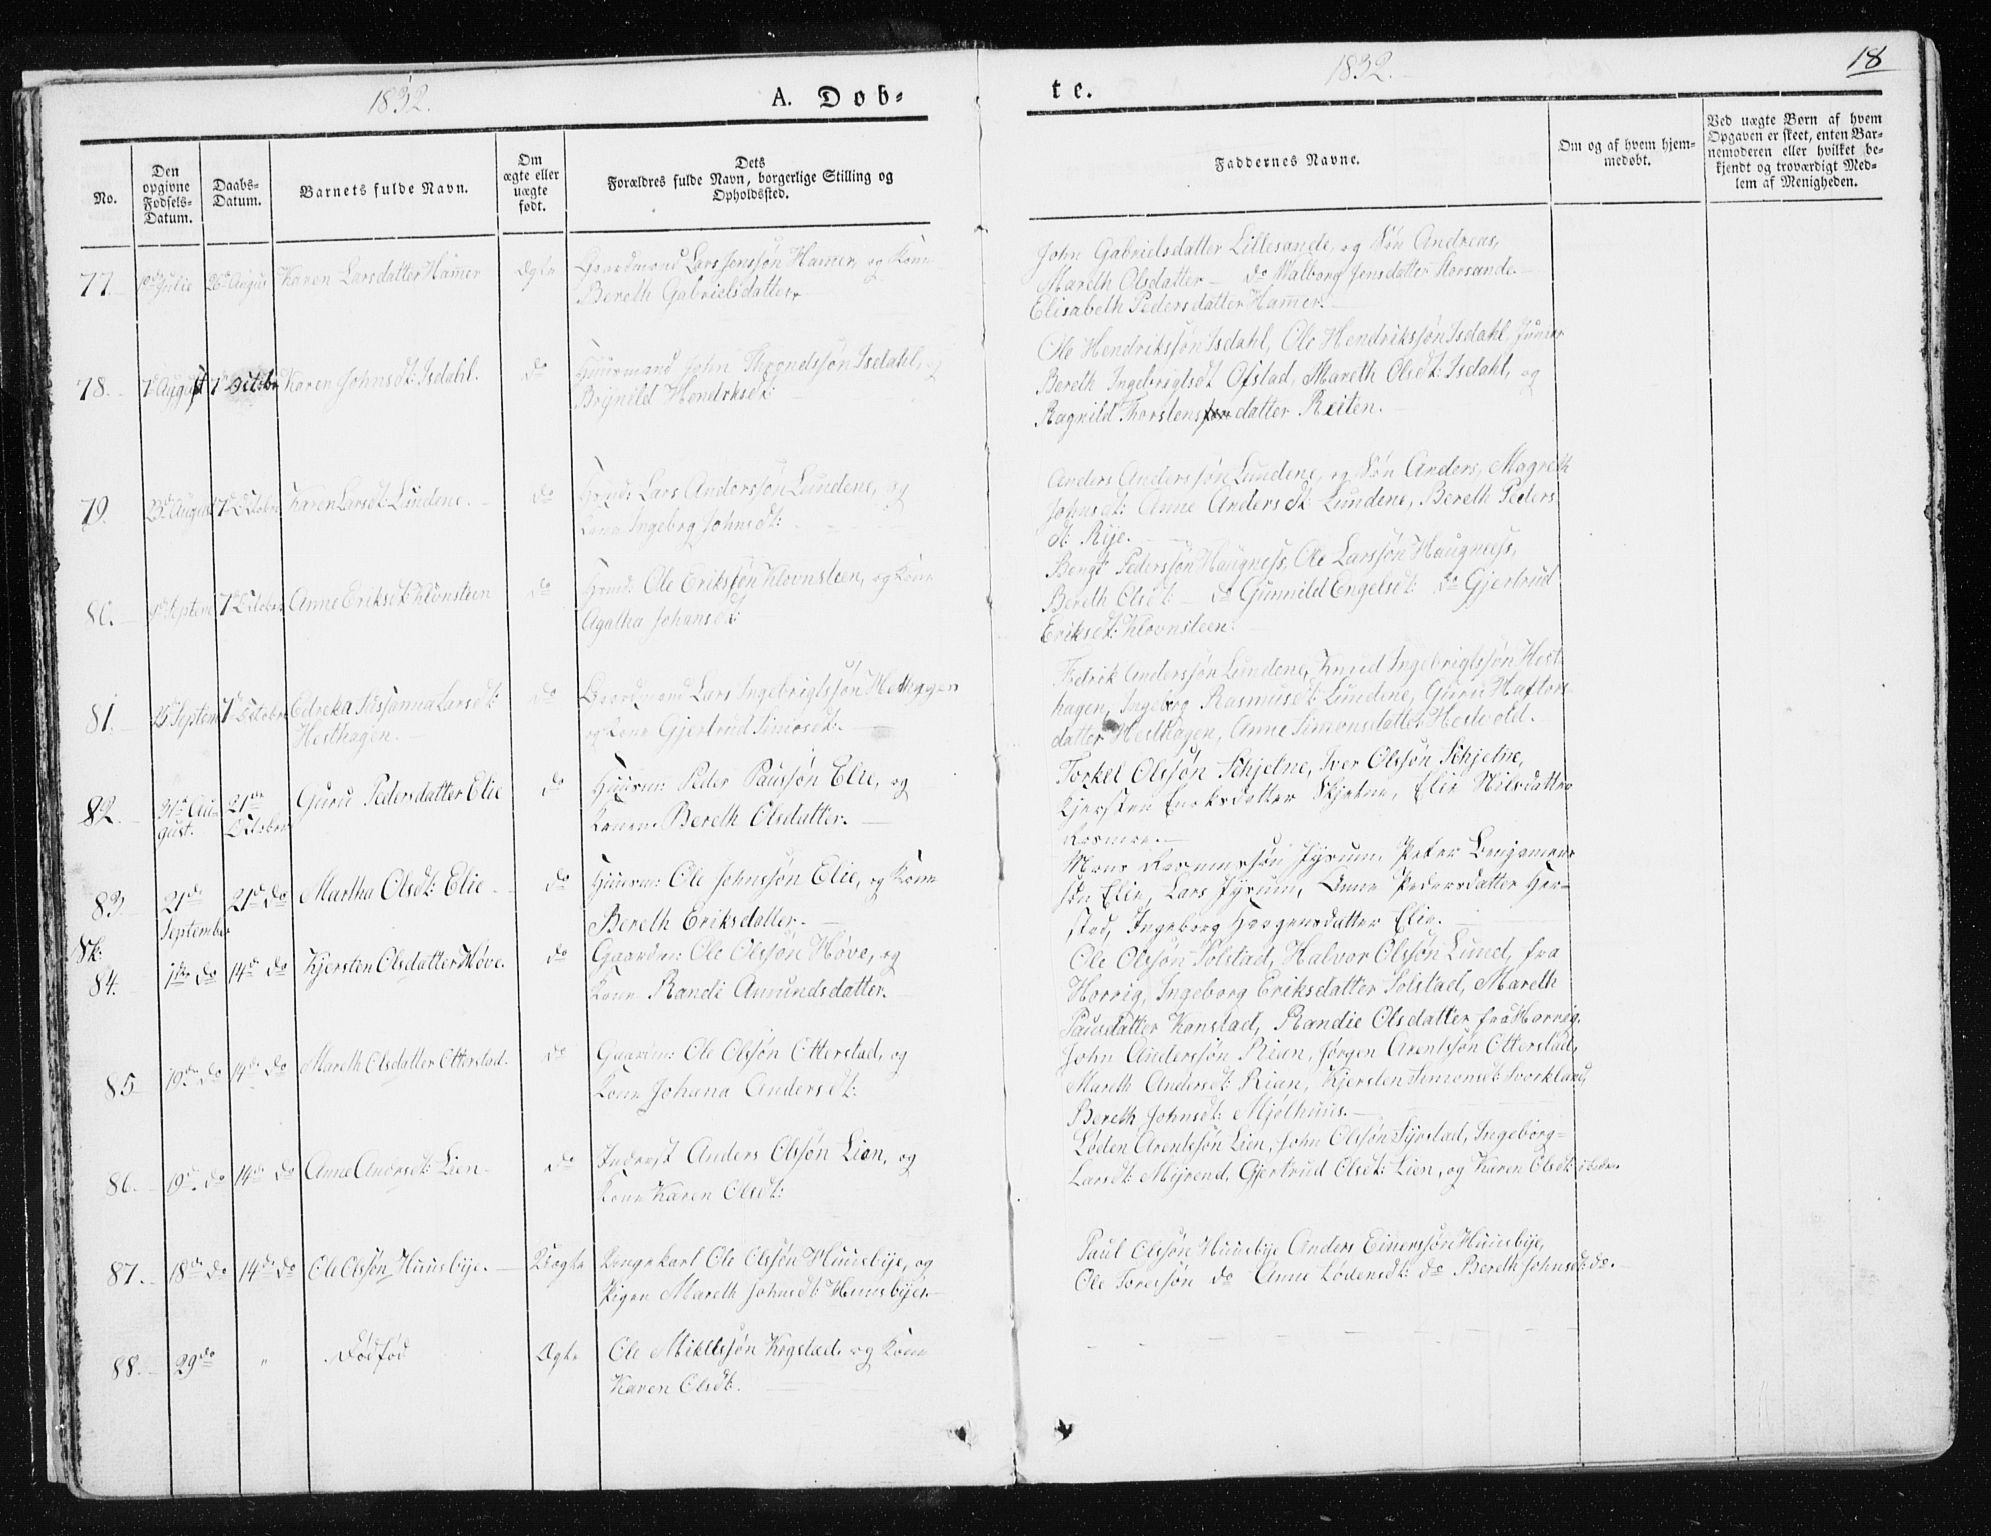 1832.
A. Dob-
te.
1832.
18
No.
Den opgivne Fødsels-Datum.
Daabs-Datum.
Barnets fulde Navn.
Om ægte eller uægte født.
Dets Forældres fulde Navn, borgerlige Stilling og Opholdssted.
Faddernes Navne.
Om og af hvem hjemmedøbt.
Ved uægte Børn af hvem Opgaven er skeet, enten Barnemoderen eller hvilket bekjendt og troværdigt Medlem af Menigheden.
77. Julie 26 August Karen Larsdatter Hamer Ægte Gaardmand Lars Jenssøn Hamer, og Kone
Bereth Gabrielsdatter
John Gabrielsdatter Lillesande, og Søn Andreas,
Mareth Olsdatter - do Walborg Jensdatter Storsande.-
Elisabeth Pedersdatter Hamer.
78. 7 August 7 October Karen Johnsdt: Isdahl. do Huusmand John Throndssøn Isedahl, og
Brynild Hendriksdt:
Ole Hendrikssøn Isdahl, Ole Hendrikssøn Isdahl, Junior
Bereth Ingebrigtsdt Ofstad, Mareth Olsdt: Isdahl, og
Ragnild Thorstensdatter Reiten.
79. 23 August 7 October Karen Larsdt Lundene. do Huusmd: Lars Anderssøn Lundene, og
Kone Ingebrg Johnsdt:
Anders Anderssøn Lundene, og Søn Anders, Magreth
Johnsdt: Anne Andersdt: Lundene, Bereth Peders
dt: Rye.
80. Septem 7 October Anne Eriksdt: Klovnsteen do Ole Erikssøn Klovnsteen, og Kone
Agatha Johansdt:
Bengt Pederssøn Haugness, Ole Larssøn Haugness,
Bereth Olsdt: - do Gunnild Engelsdt: do Gjertrud
Eriksdt: Klovnsteen.
81. 25 Septem 7 October Edreka Susanna Larsdt:
Hesthagen. do Gaardmand Lars Ingebrigtssøn
og Kone Gjertrud Simosdt:
Fedrik Anderssøn Lundene, Knud Ingebrigtssøn Hest
hagen, Ingeborg Rasmusdt: Lundene, Guru Haftor
datter Hesthagen, Anne Simonsdatter Hestvold.
82. 31 August. 21de October Guru Pedersdatter Elie do Huusm: Peder Paussøn Elie, og
Konen Bereth Olsdatter.
Torkel Olssøn Schjetne, Iver Olssøn Schjetne,
Kjersten Enoksdatter Skjetne, Elie Nilsdatter
83. 21de September 21de do Martha Olsdt: Elie do Huusm: Ole Johnssøn Elie, og Kone
Bereth Eriksdatter.
Peter Benjamens
søn Elie, Lars Fyrum, Anne Pedersdatter Her-
stad, Ingeborg Haagensdatter Elie.
84. 1ste do 14de do Kjersten Olsdatter Høve. do Gaardm: Ole Olssøn Høve, og
Kone Randi Amundsdatter.
Ole Olssøn Solstad, Halvor Olssøn Lund, fra
Horrig, Ingeborg Eriksdatter Solstad, Mareth
Pausdatter Konstad, Randie Olsdatter fra Horrig.
85 19de do 14de do Mareth Olsdatter Otterstad. do Gaardm: Ole Olssøn Otterstad, og
Kone Johana Andersdt:
John Anderssøn Rian, Jørgen Arentssøn Otterstad,
Mareth Andersdt: Rian, Kjersten Simonsdt: Svorkland,
Bereth Johnsdt: Mjølhuus.
86. 19de do 14de do Anne Andersdt: Lien do Inderst Anders Olssøn Lien, og
Kone Karen Olsdt:
Loden Arentssøn Lien, John Olssøn Syrstad, Ingeborg
Larsdt: Myrend, Gjertrud Olsdt: Lien, og Karen Olsdt: ibidm.
87. 18de do 14de do Ole Olssøn Huusbye. Uægte Ungekarl Ole Olssøn Huusbye, og
Pigen Mareth Johnsdt: Huusbye.
Paul Olssøn Huusbye Anders Einerssøn Huusbye,
Ole Toressøn do Anne Lodensdt: do Bereth Johnsdt: do.
88. 29de do " Dødfød Ægte Ole Mikelssøn Krgstad, og Kone
Karen Olsdt.